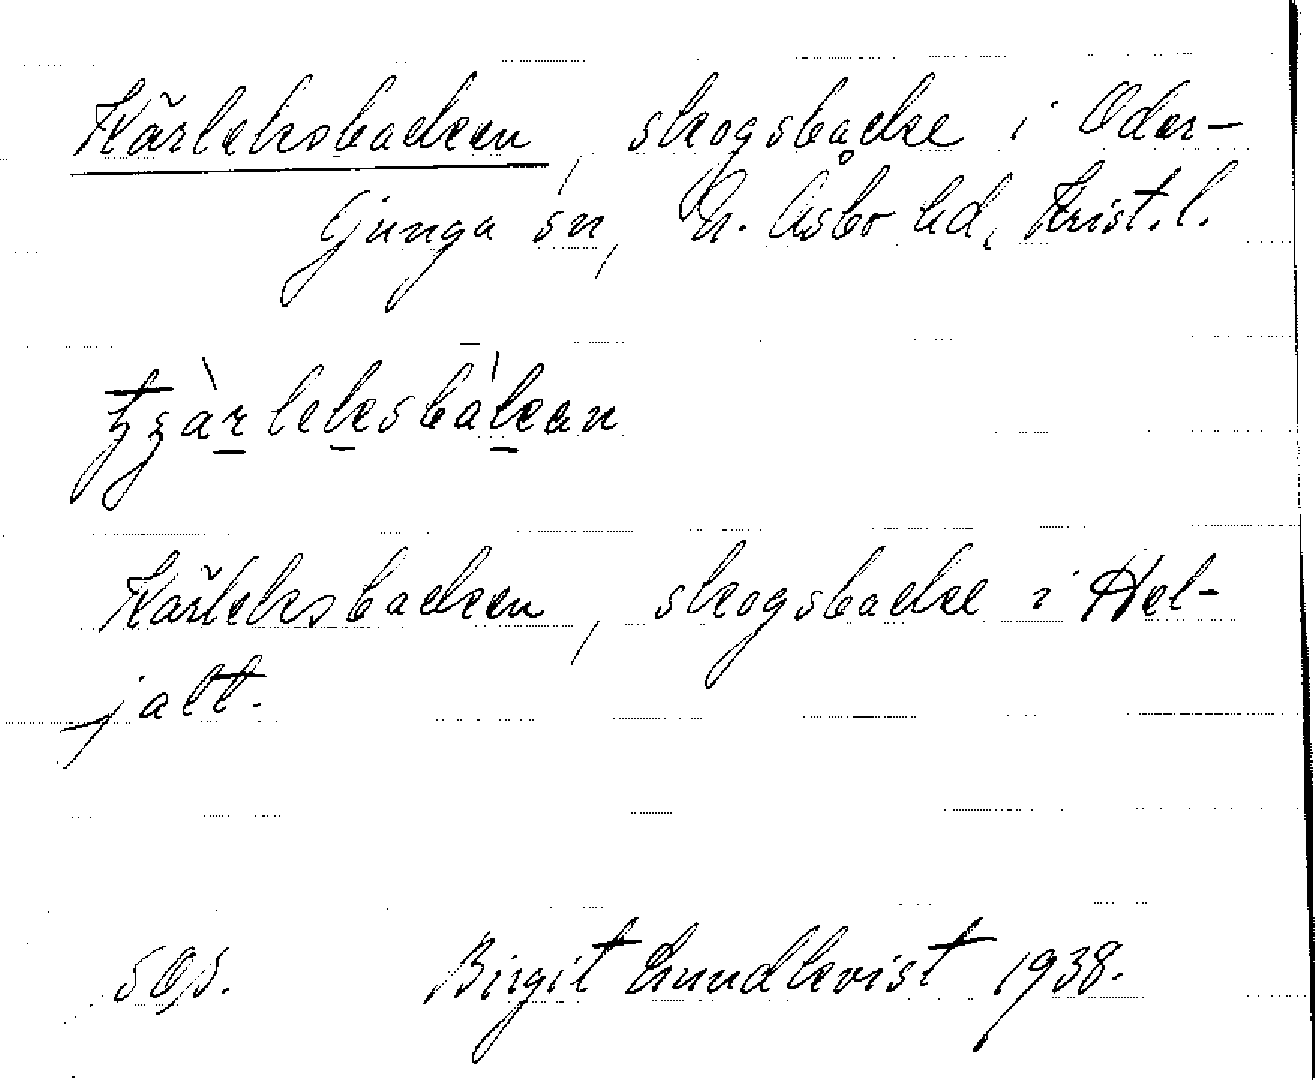 Kärleksbacken, skogsbacke i Oder-
ljunga sn, N. Åsbo hd, Krist. l.
kärleksbacken, skogsbacke i Hel-
jalt.
Birgit Lundkvist 1938.